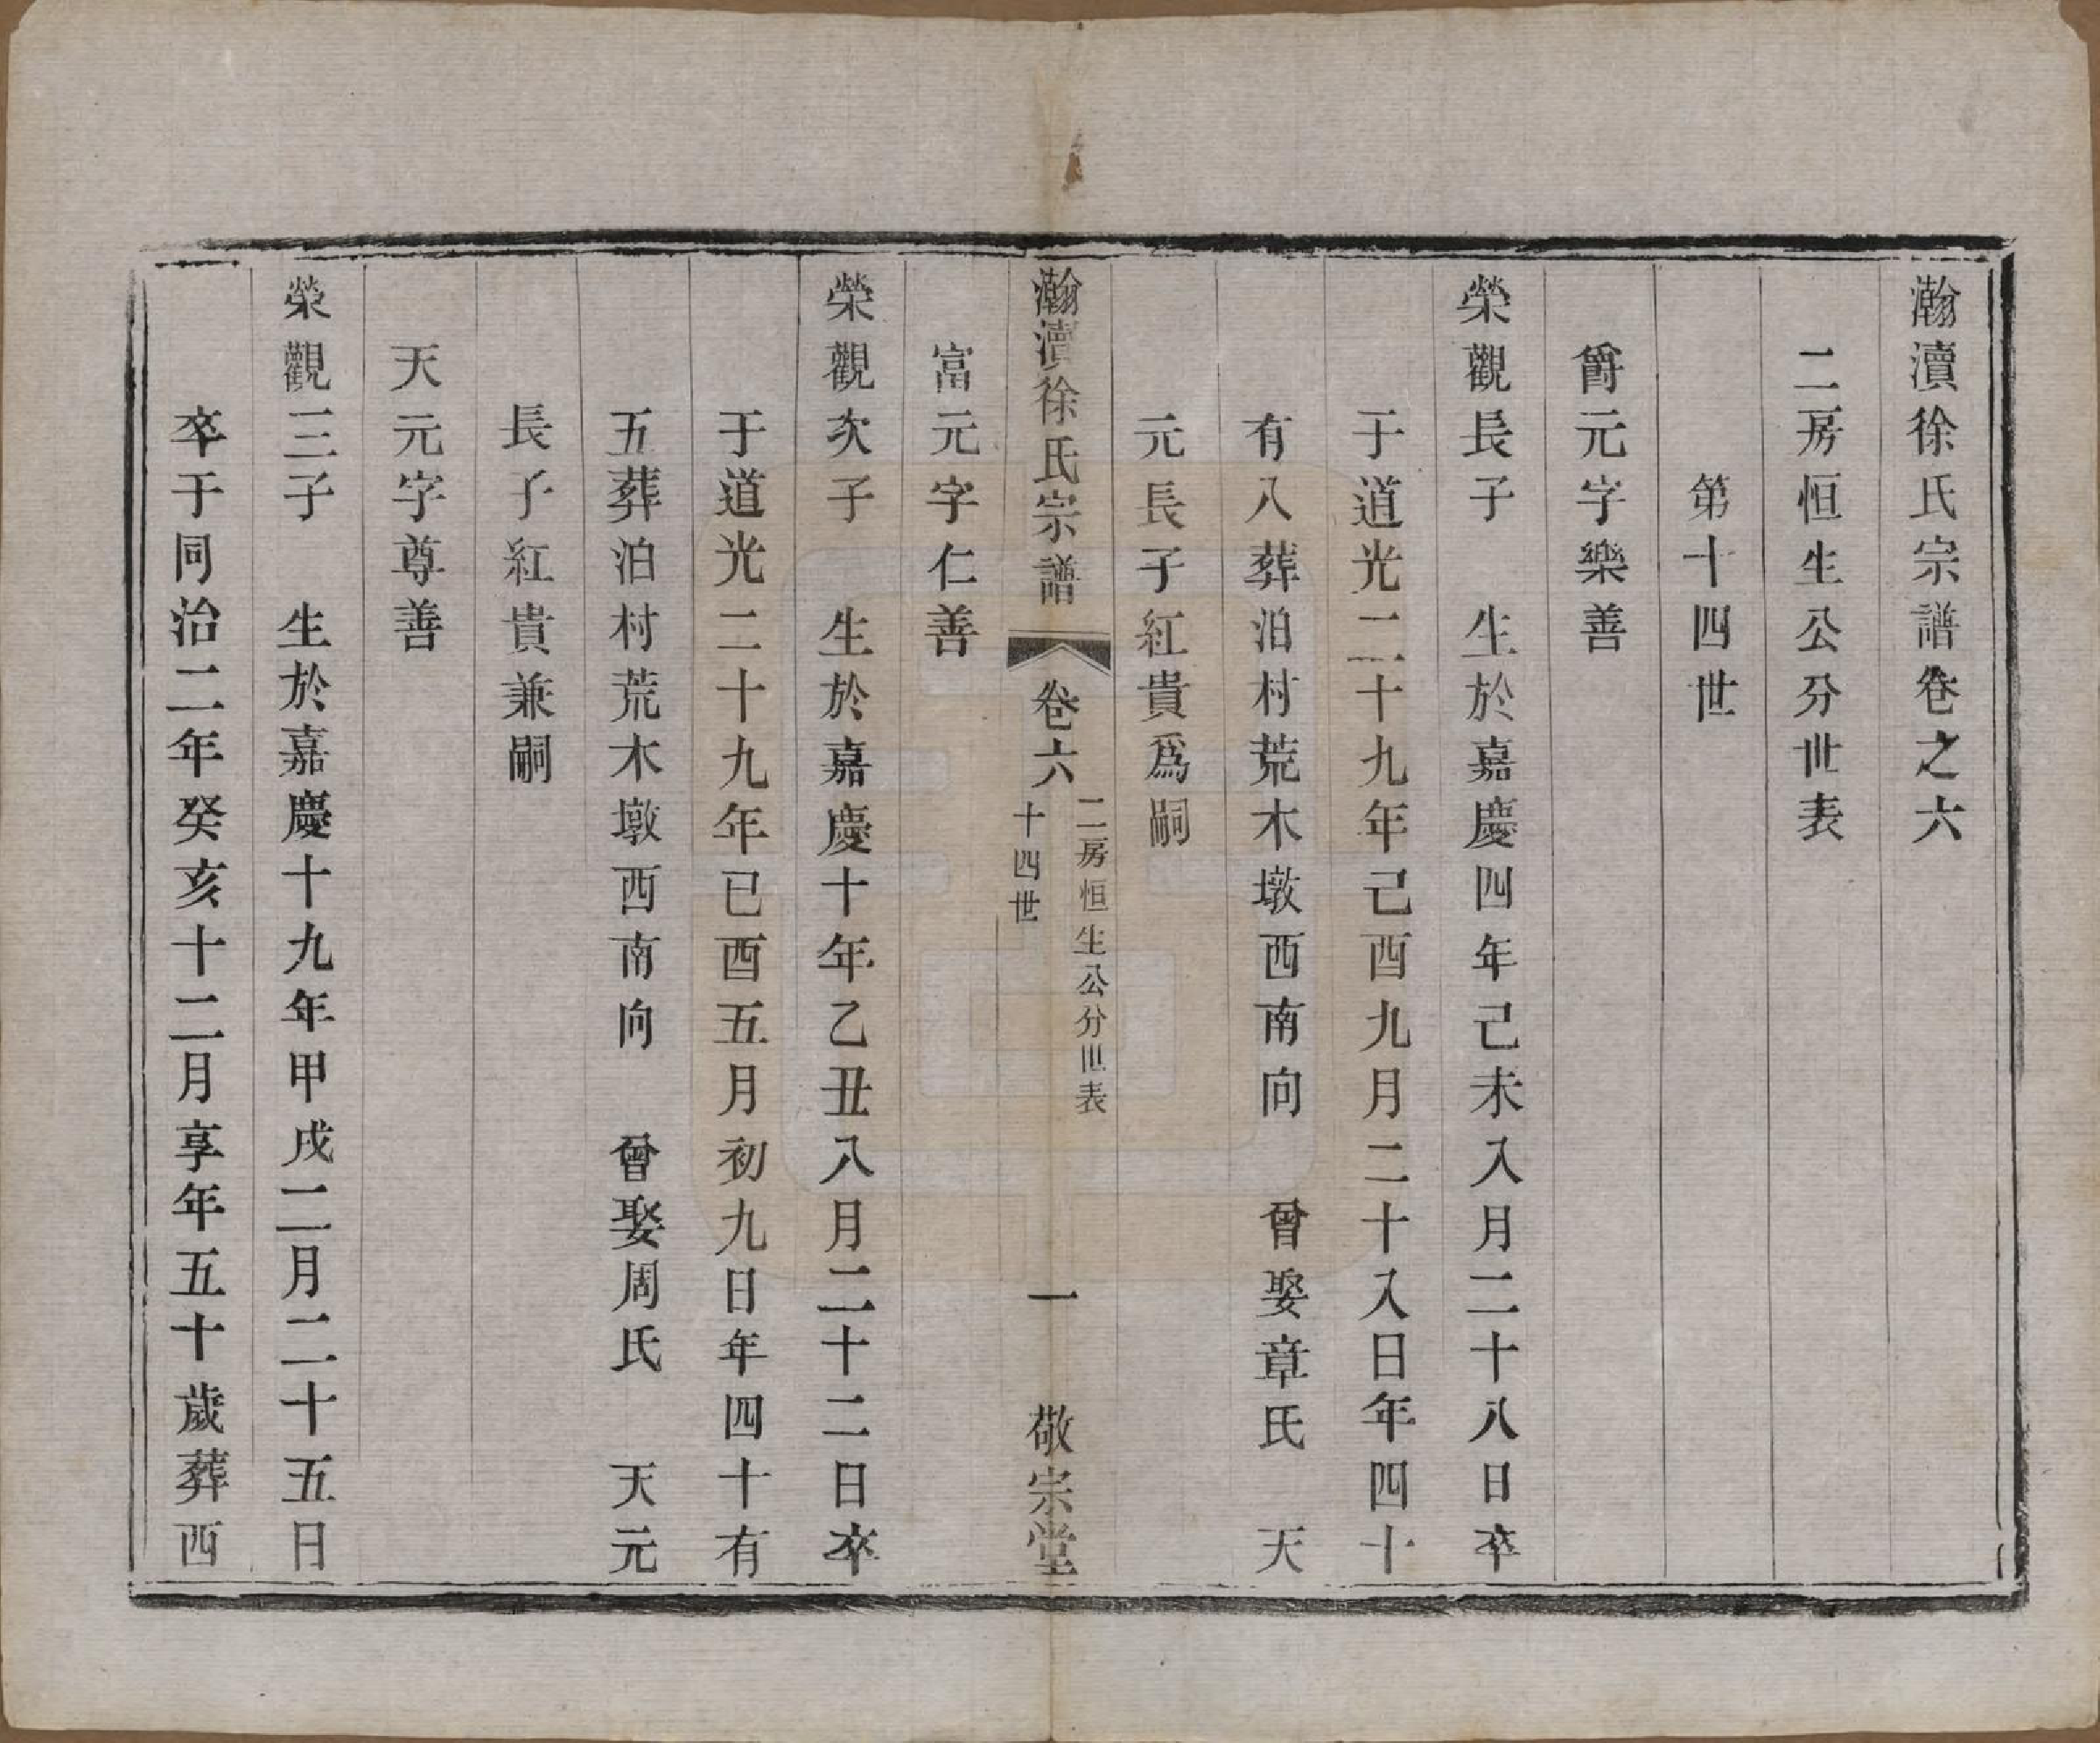 瀚瀆徐氏宗譜卷之六
二房恒生公分世表
第十四世
爵元字樂善
榮觀長子　生於嘉慶四年己未八月二十八日卒
于道光二十九年己酉九月二十八日年四十
有八葬泊村荒木墩西南向　曾娶章氏　天
元長子紅貴爲嗣
瀚瀆徐氏宗譜　卷六　二房恒生公分世表　十四世　一　敬宗堂
富元字仁善
榮觀次子　生於嘉慶十年乙丑八月二十二日卒
于道光二十九年已酉五月初九日年四十有
五葬泊村荒木墩西南向　曾娶周氏　天元
長子紅貴兼嗣
天元字尊善
榮觀三子　生於嘉慶十九年甲戌二月二十五日
卒于同治二年癸亥十二月享年五十歲葬西